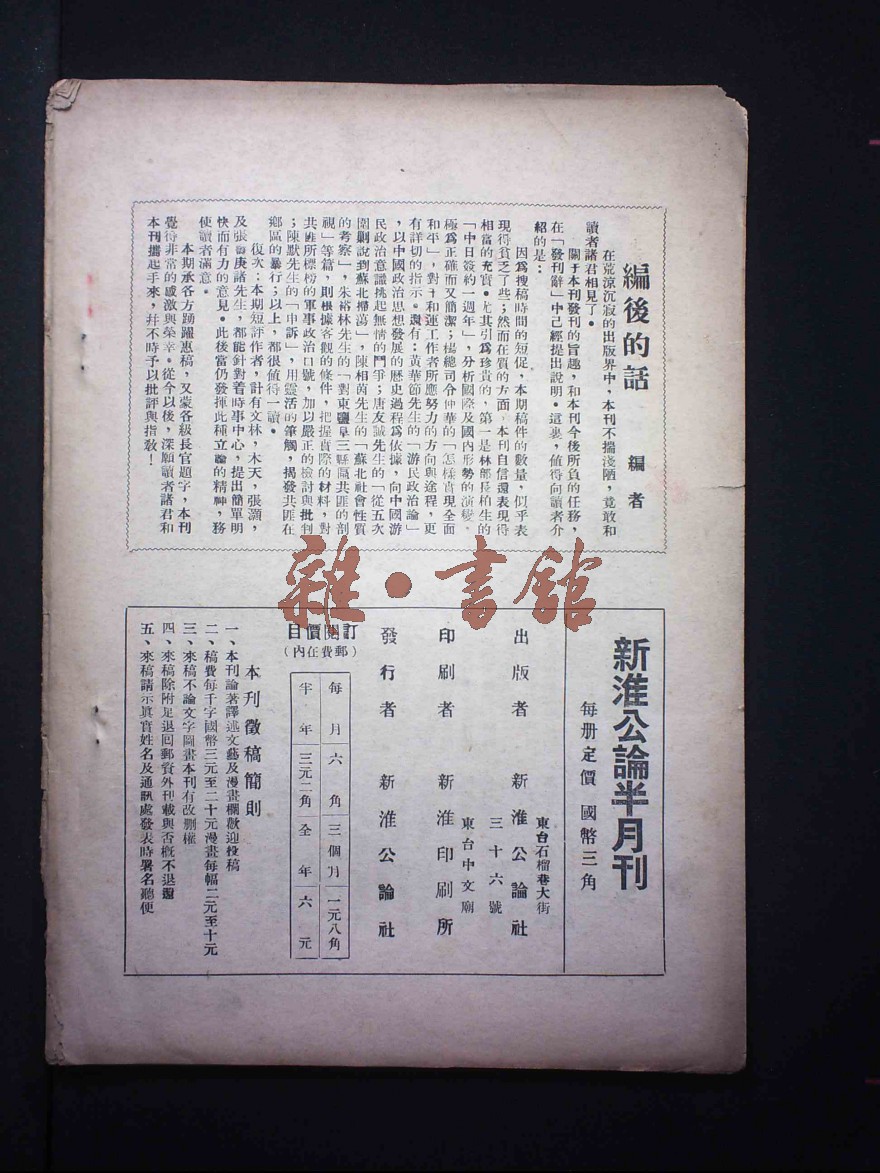 編後的話
編者
在荒涼沉寂的出版界中，本刊不揣淺陋，竟敢和
讀者諸君相見了。
關于本刊發刊的旨趣，和本刊今後所負的任務，
在「發刊辭」中己經提出說明。這裏，值得向讀者介
紹的是：
因爲搜稿時間的短促，本期稿件的數量，似乎表
現得貧乏了些；然而在質的方面，本刊自信還表現得
相當的充實。尤其引爲珍貴的，第一是林部長柏生的
「中日簽約一週年」，分析國際及國內形勢的演變，
極爲正確而又簡潔；楊總司令仲華的「怎樣實現全面
和平」，對于和運工作者所應努力的方向與途程，更
有詳切的指示。還有：黃華節先生的「游民政治論」
，以中國政治思想發展的歷史過程爲依據，向中國游
民政治意識挑起無情的鬥爭；唐友誠先生的「從五次
圍剿說到蘇北掃蕩」，陳相茵先生的「蘇北社會性質
的考察」，朱裕林先生的「對東鹽阜三縣區共匪的剖
視」等篇，則根據客觀的條件，把握實際的材料，對
共匪所標榜的軍事政治口號，加以嚴正的檢討與批判
；陳默先生的「申訴」，用靈活的筆觸，揭發共匪在
鄉區的暴行；以上，都很値得一讀。
復次：本期短評作者，計有文林，木天，張灝，
及張魯庚諸先生，都能針對着時事中心，提出簡單明
快而有力的意見。此後當仍發揮此種立論的精神，務
使讀者滿意。
本期承各方踴躍惠稿，又蒙各級長官題字，本刊
覺得非常的感激與榮幸。從今以後，深願讀者諸君和
本刊攜起手來，并不時予以批評與指敎！
雜·書館
新淮公論半月刊
每册定價 國幣三角
東台石榴巷大街
出版者 新淮公論社
三十六號
東台中文廟
印刷者 新淮印刷所
發行者 新淮公論社
訂閱價目
（郵費在內）
每月 六角 三個月 一元八角
半年 三元二角 全年 六元
本刊徵稿簡則
一、本刊論著譯述文藝及漫畫欄歡迎投稿
二、稿費每千字國幣三元至二十元漫畫每幅二元至十元
三、來稿不論文字圖畫本刊有改删權
四、來稿除附足退囘郵資外刊載與否概不退還
五、來稿請示眞實姓名及通訊處發表時署名聽便